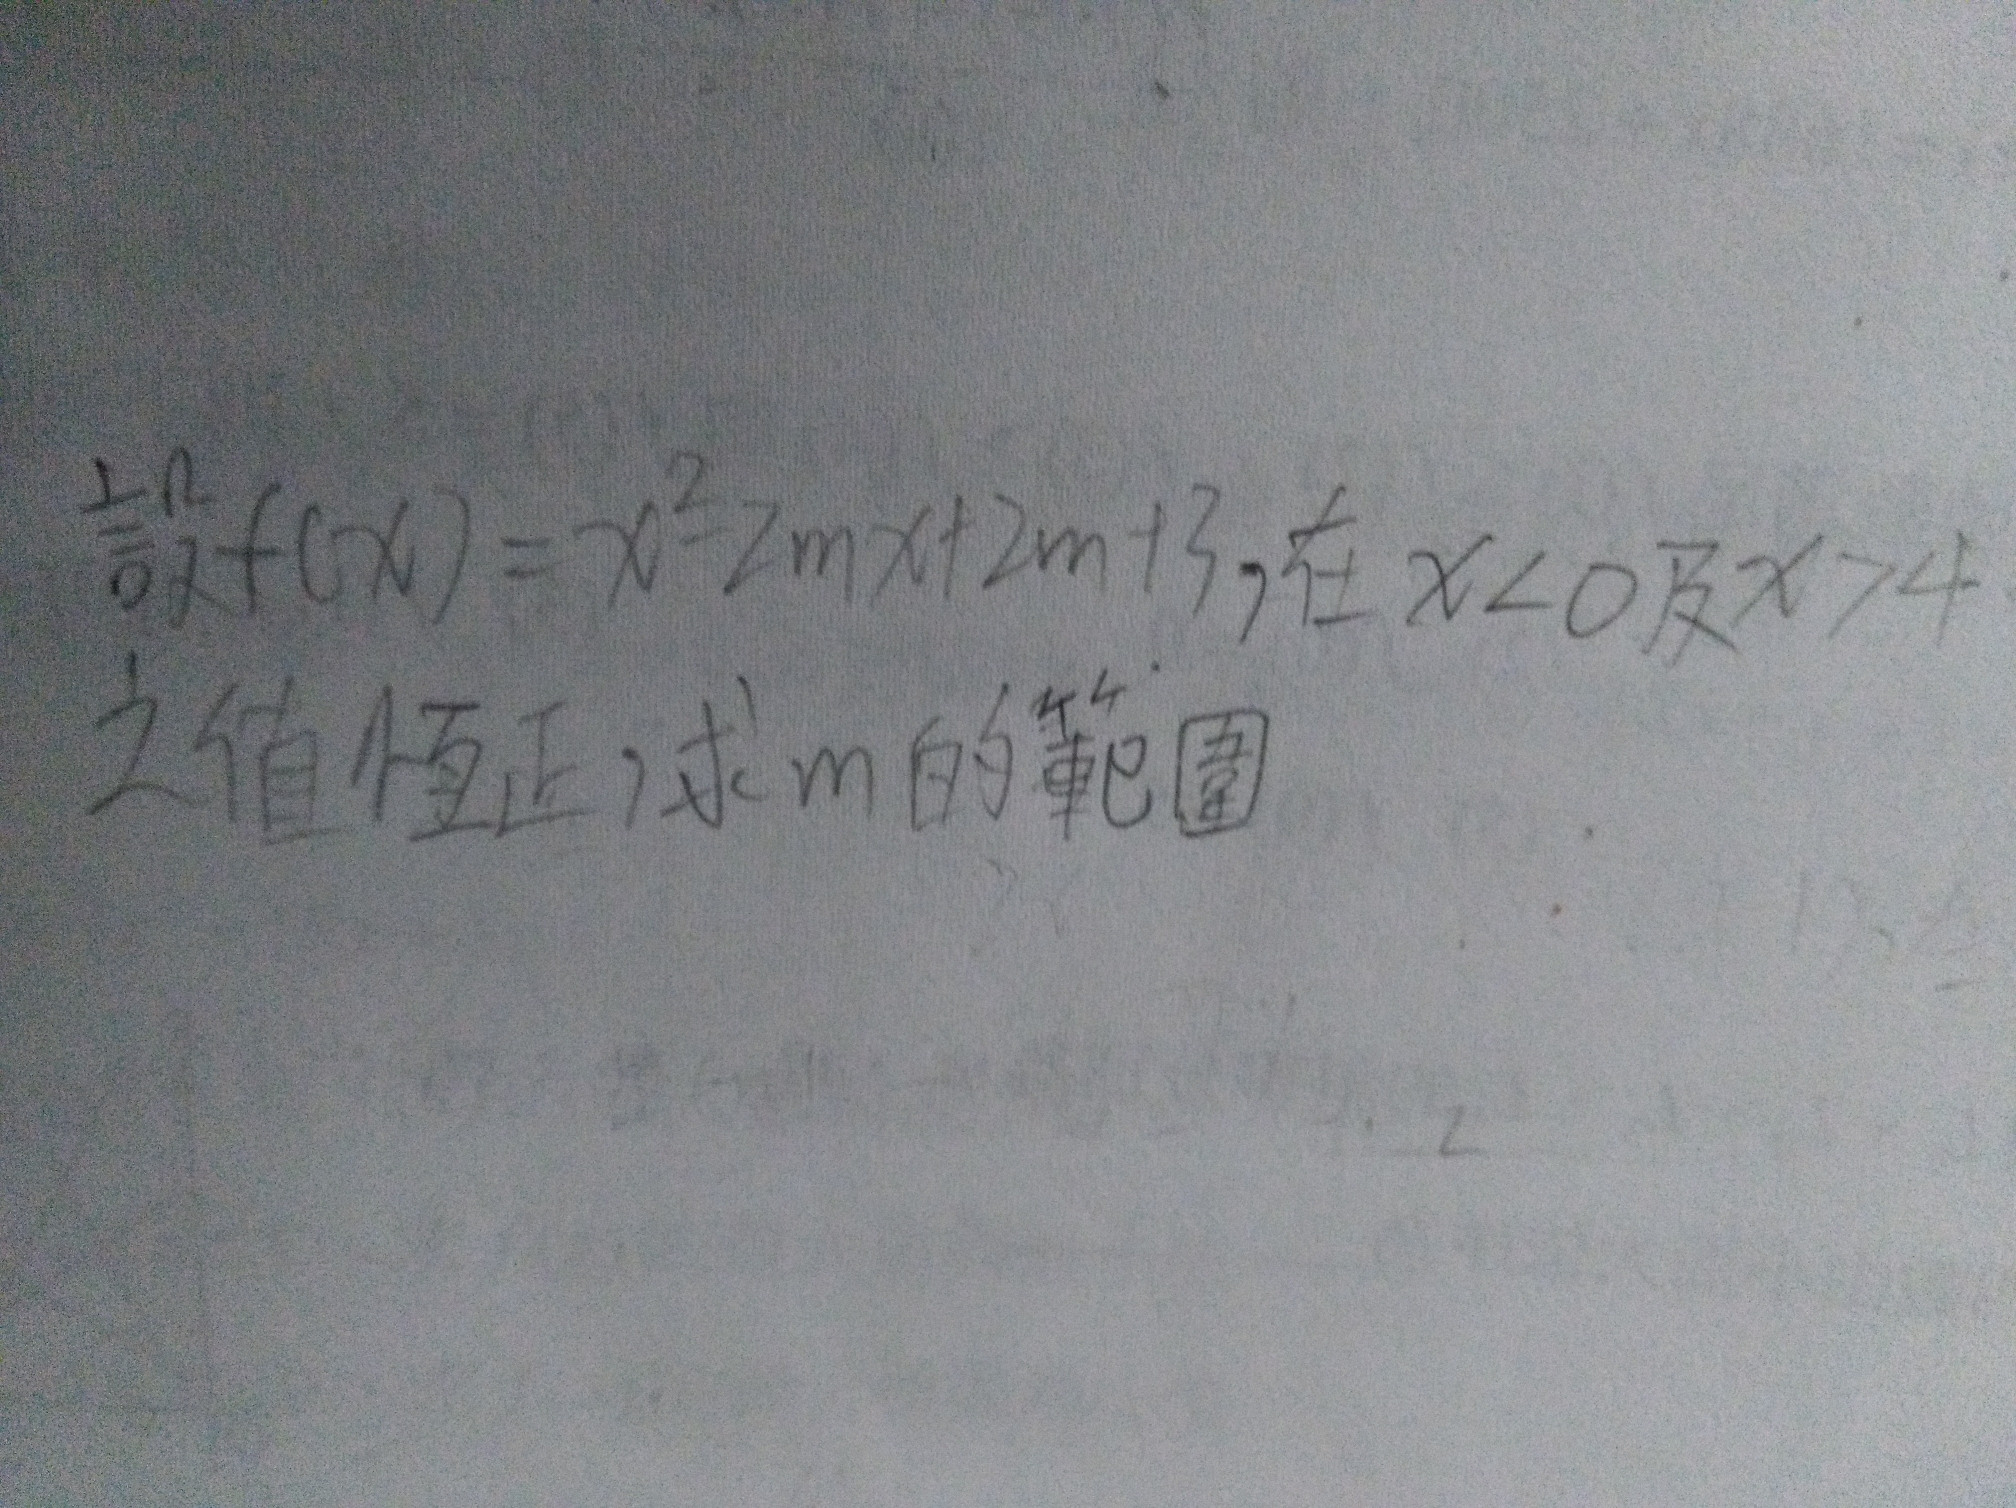 設f(x)=x²-2mx+2m+3,在x<0及x>4
之值恆正,求m的範圍